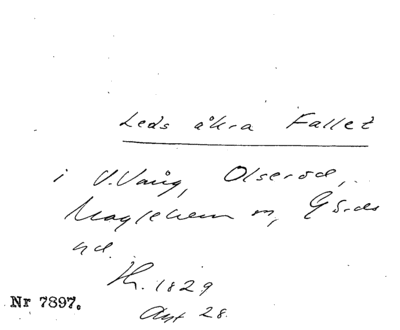 Leds åkra Fallet
i V.Vång, Olseröd,
Maglehem m, Gärds
hd.
H. 1829
Akt 28.
Nr 7897.